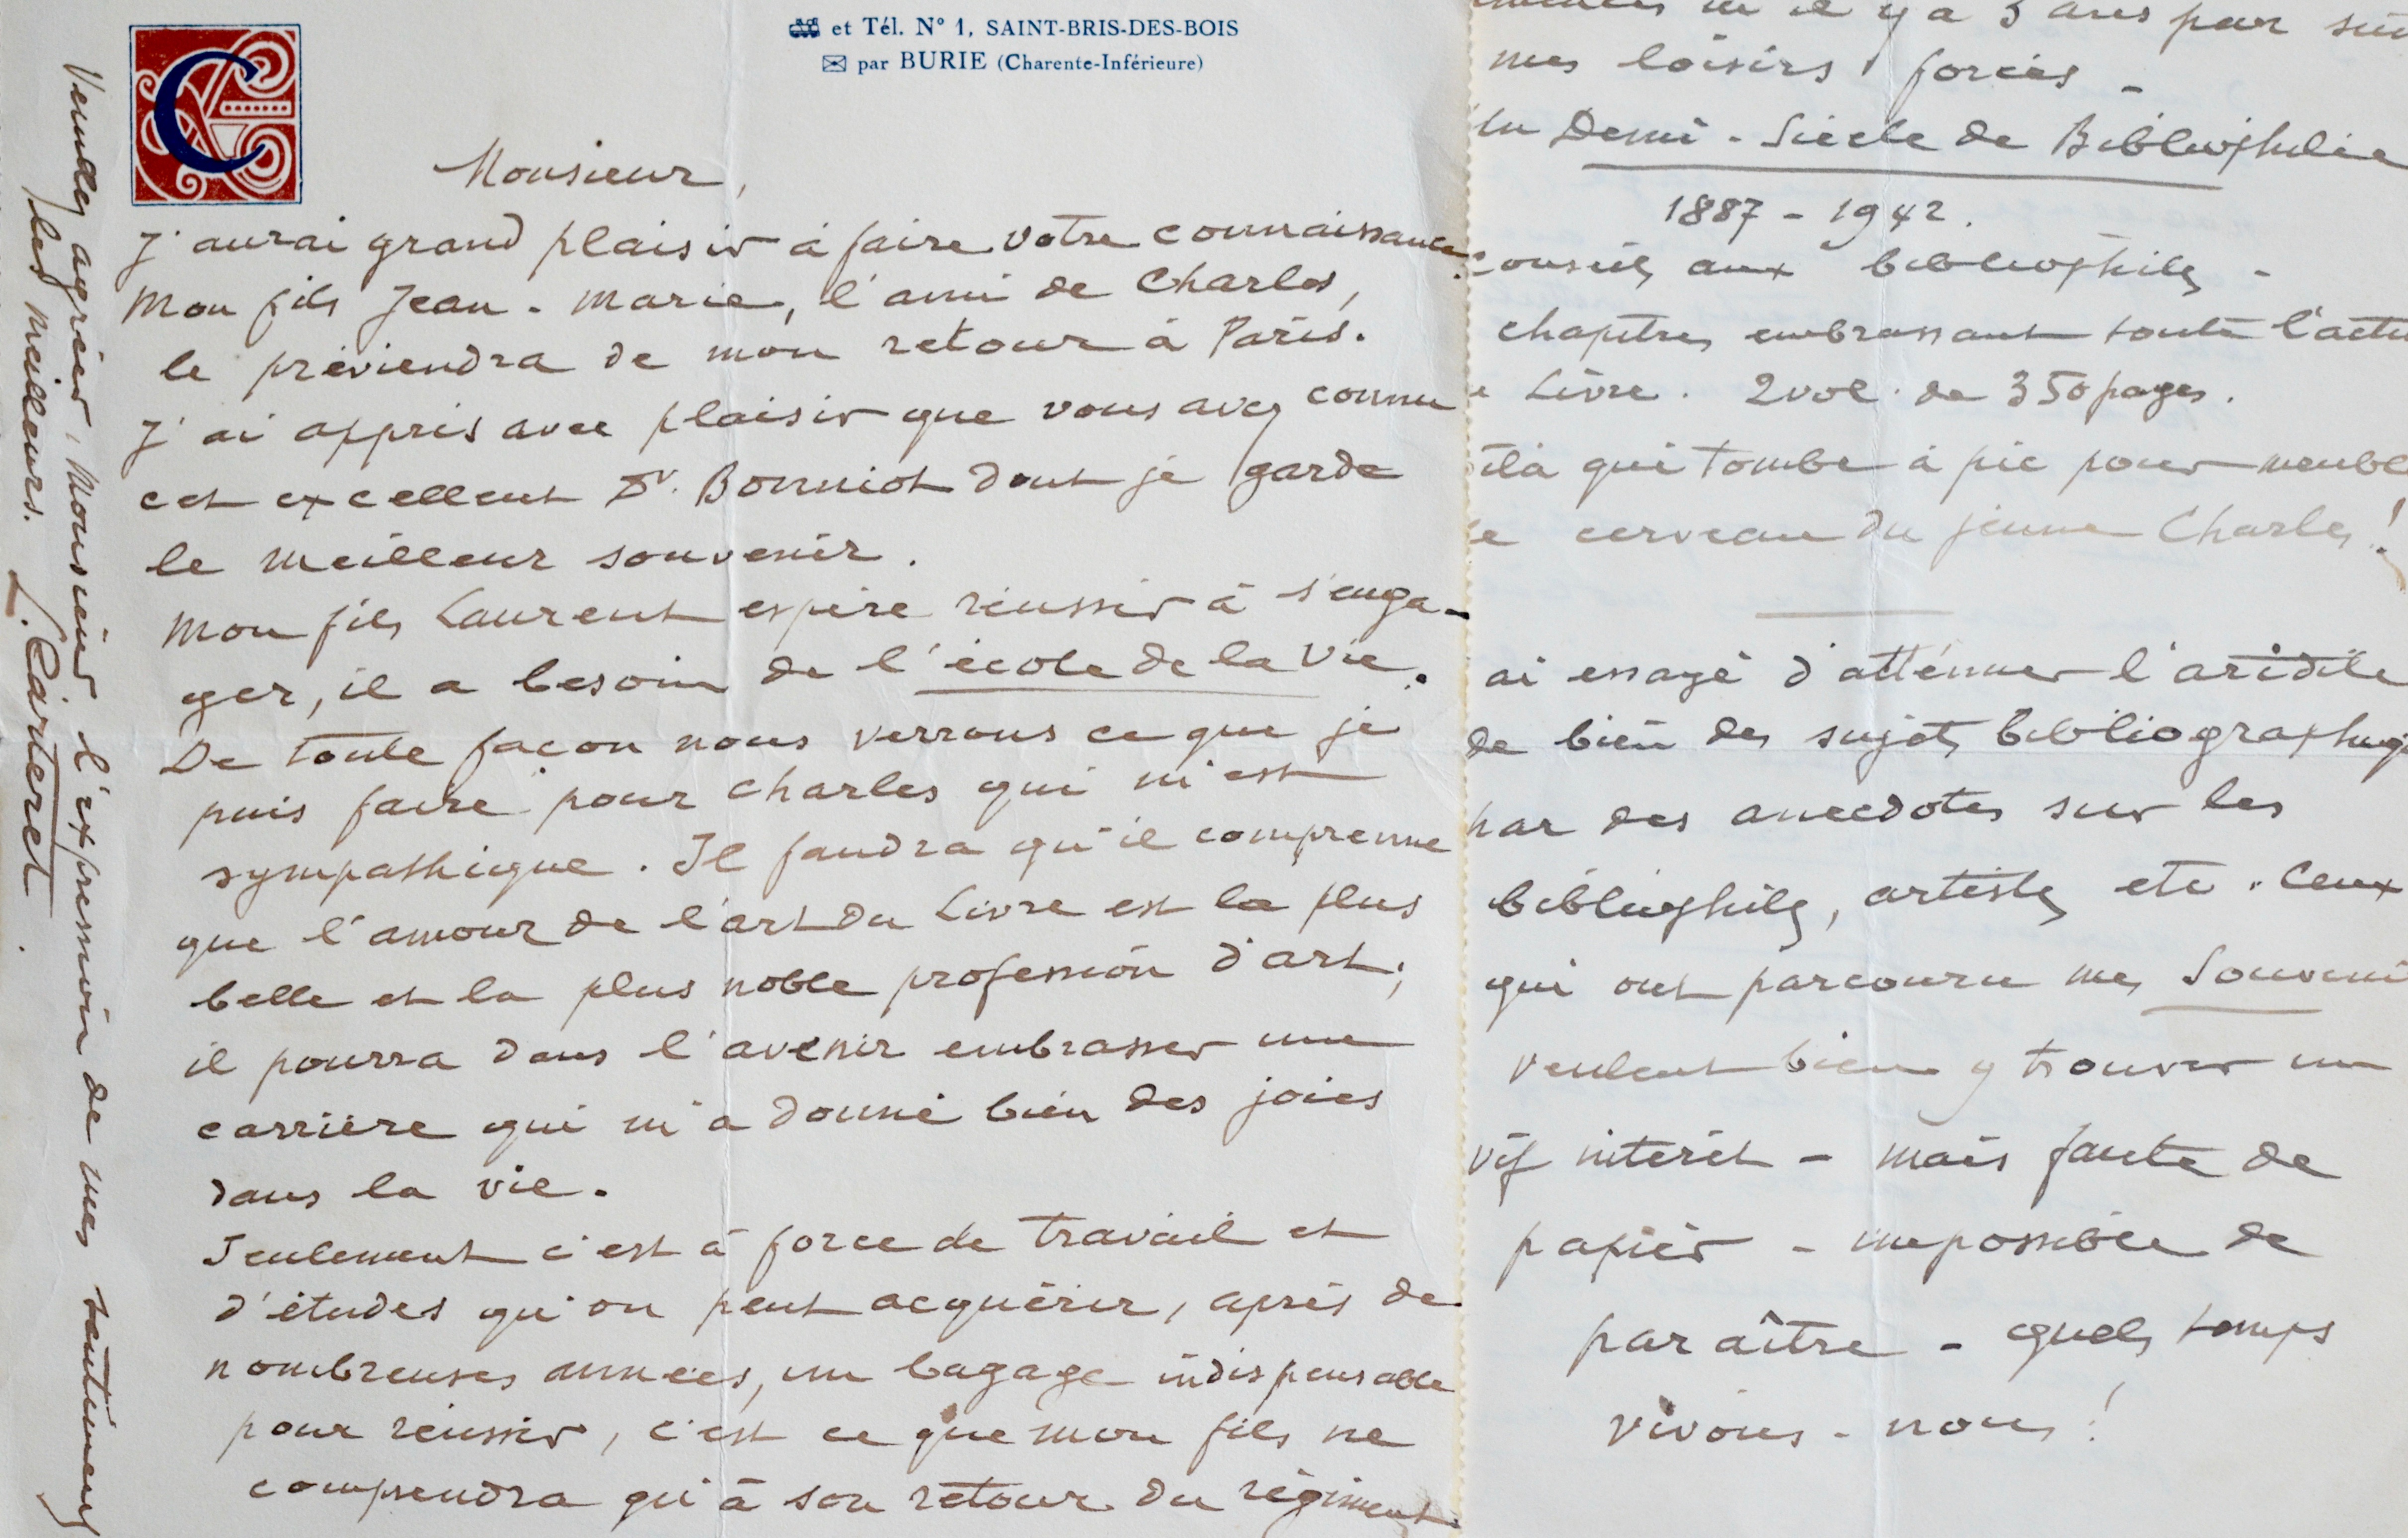 C
et Tél. N° 1, SAINT-BRIS-DES-BOIS
par BURIE (Charente-Inférieure)
Monsieur,
J'aurai grand plaisir à faire votre connaissance.
Mon fils Jean-Marie, l'ami de Charles,
le préviendra de mon retour à Paris.
J'ai appris avec plaisir que vous avez connu
cet excellent Dr. Bonniot dont je garde
le meilleur souvenir.
Mon fils Laurent espère réussir à s'enga-
ger, il a besoin de l'école de la Vie.
De toute façon nous verrons ce que je
puis faire pour Charles qui m'est
sympathique. Il faudra qu'il comprenne
que l'amour de l'art du Livre est la plus
belle et la plus noble profession d'art;
il pourra dans l'avenir embrasser une
carrière qui m'a donné bien des joies
dans la vie.
Seulement c'est à force de travail et
d'études qu'on peut acquérir, après de
nombreuses années, un bagage indispensable
pour réussir, c'est ce que mon fils ne
comprendra qu'à son retour du régiment.
Veuillez agréer, Monsieur l'expression de mes sentiments
les meilleurs.
L. Carteret.
il y a 3 ans pour
mes loisirs forcés -
Un Demi-Siècle de Bibliophilie
1887 - 1942.
conseils aux bibliophiles -
chapitres embrassant toute l'actu
Livre. 2 vol. de 350 pages.
oilà qui tombe à pic pour meubl
le cerveau du jeune Charles!
ai essayé d'atténuer l'aridité
de bien des sujets bibliographiq
par des anecdotes sur les
bibliophiles, artistes etc. Ceux
qui ont parcouru mes Souveni
veulent bien y trouver un
vif intérêt - mais faute de
papier - impossible de
paraître - quels temps
vivons-nous!